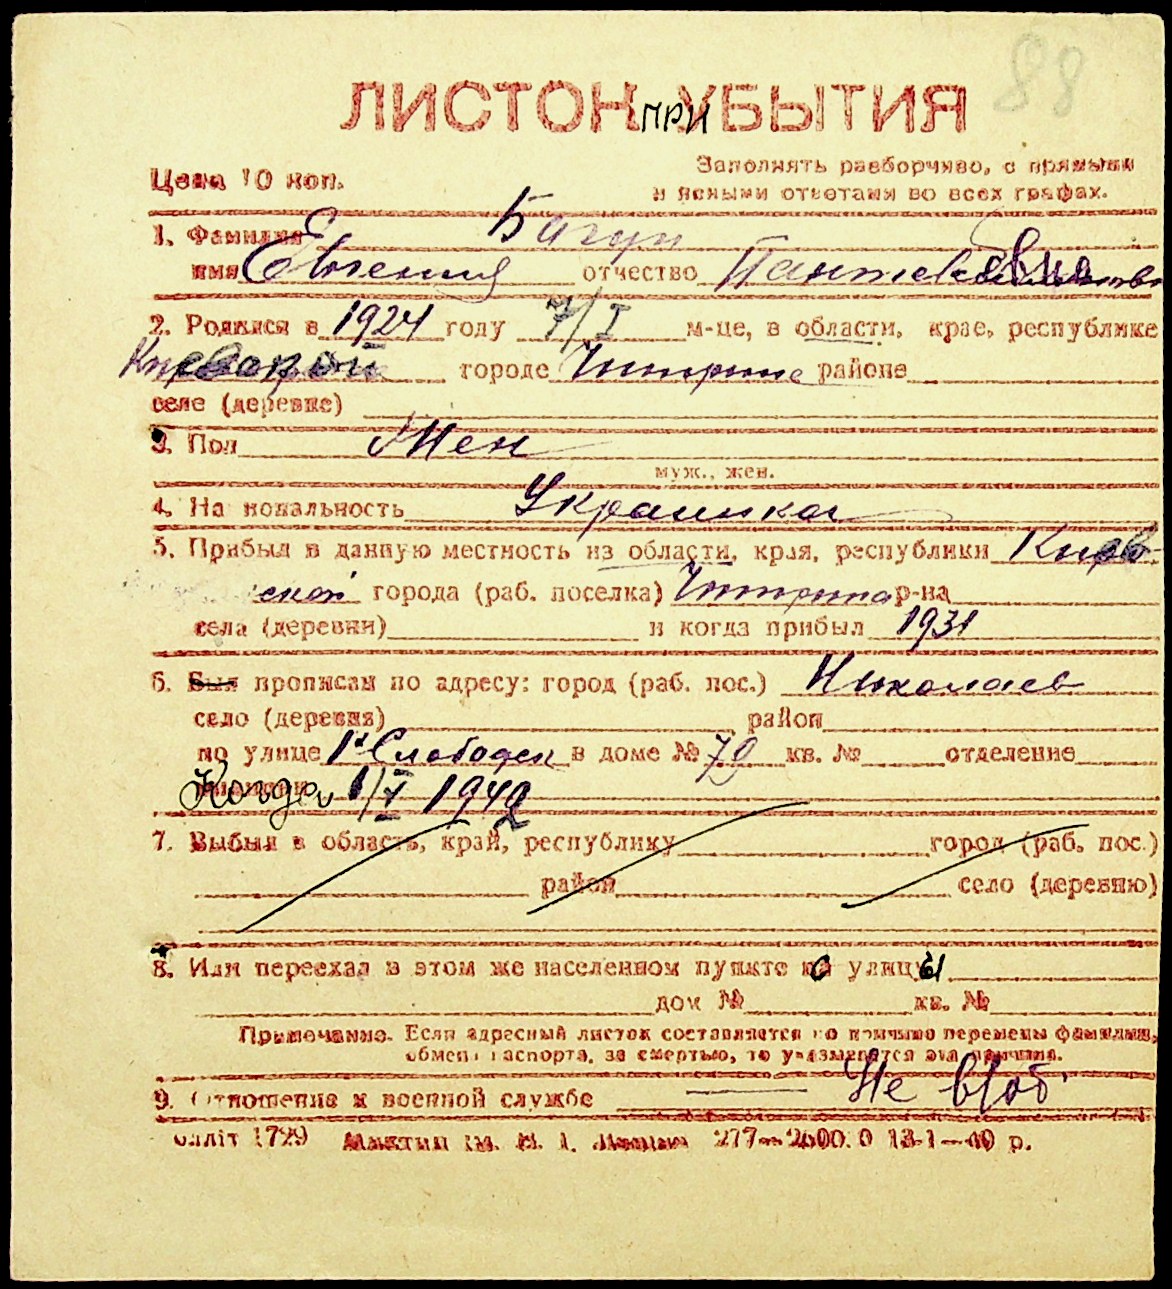 88
ЛИСТОК ПРИ УБЫТИЯ
Цена 10 коп.
Заполнять разборчиво, с прямыми
и ясными ответами во всех графах.
1. Фамилия
имя Евгения отчество
2. Родился в 1924 году 7/I м-це, в области, крае, республике
городе районе
селе (деревне)
3. Пол Жен
муж., жен.
4. Национальность Украинка
5. Прибыл в данную местность из области, края, республики
ской города (раб. поселка) р-на
села (деревни) и когда прибыл 1931
6. Был прописан по адресу: город (раб. пос.) Николаев
село (деревня) район
по улице 1я Слободск в доме № 79 кв. № отделение
Когда 1/V 1942
7. Выбыл в область, край, республику город (раб. пос.)
район село (деревню)
8. Или переехал в этом же населенном пункте с улицы
дом № кв. №
Примечание. Если адресный листок составляется по причине перемены фамилии,
обмена паспорта, за смертью, то указывается эта причина.
9. Отношение к военной службе — Не в/об
1729 277—2000.0 13-1—40 р.